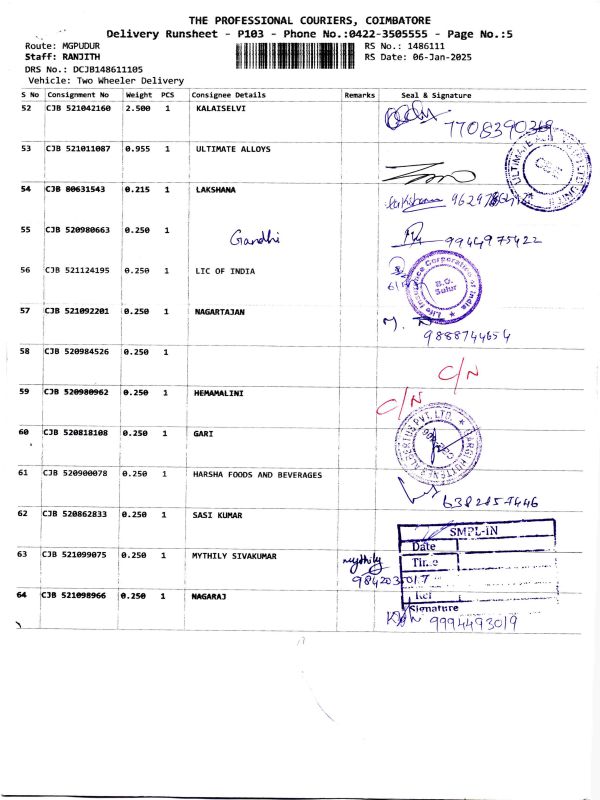 THE PROFESSIONAL COURIERS, COIMBATORE
Delivery Runsheet - P103 - Phone No.:0422-3505555 - Page No.:5
Route: MGPUDUR RS No.: 1486111
Staff: RANJITH RS Date: 06-Jan-2025
DRS No.: DCJB148611105
Vehicle: Two Wheeler Delivery
S No Consignment No Weight PCS Consignee Details Remarks Seal & Signature
52 CJB 521042160 2.500 1 KALAISELVI
7708390369
53 CJB 521011087 0.955 1 ULTIMATE ALLOYS
54 CJB 80631543 0.215 1 LAKSHANA
55 CJB 520980663 0.250 1 Gandhi 9944975422
56 CJB 521124195 0.250 1 LIC OF INDIA
Life Insurance Corporation of India
B.O.
Sulur
57 CJB 521092201 0.250 1 NAGARTAJAN
9888744654
58 CJB 520984526 0.250 1
C/N
59 CJB 520980962 0.250 1 HEMAMALINI C/N
60 CJB 520818108 0.250 1 GARI
61 CJB 520900078 0.250 1 HARSHA FOODS AND BEVERAGES
6382857446
62 CJB 520862833 0.250 1 SASI KUMAR
SMPL-IN
Date
63 CJB 521099075 0.250 1 MYTHILY SIVAKUMAR Mythily Time
9842035017
64 CJB 521098966 0.250 1 NAGARAJ Ref
Signature
9994493019